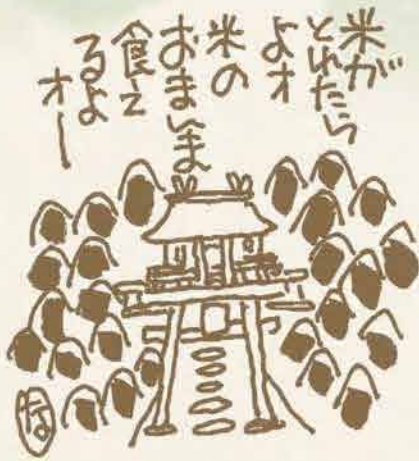 米が
とれたら
よオ
米の
おまんま
食え
るよ
オー
な